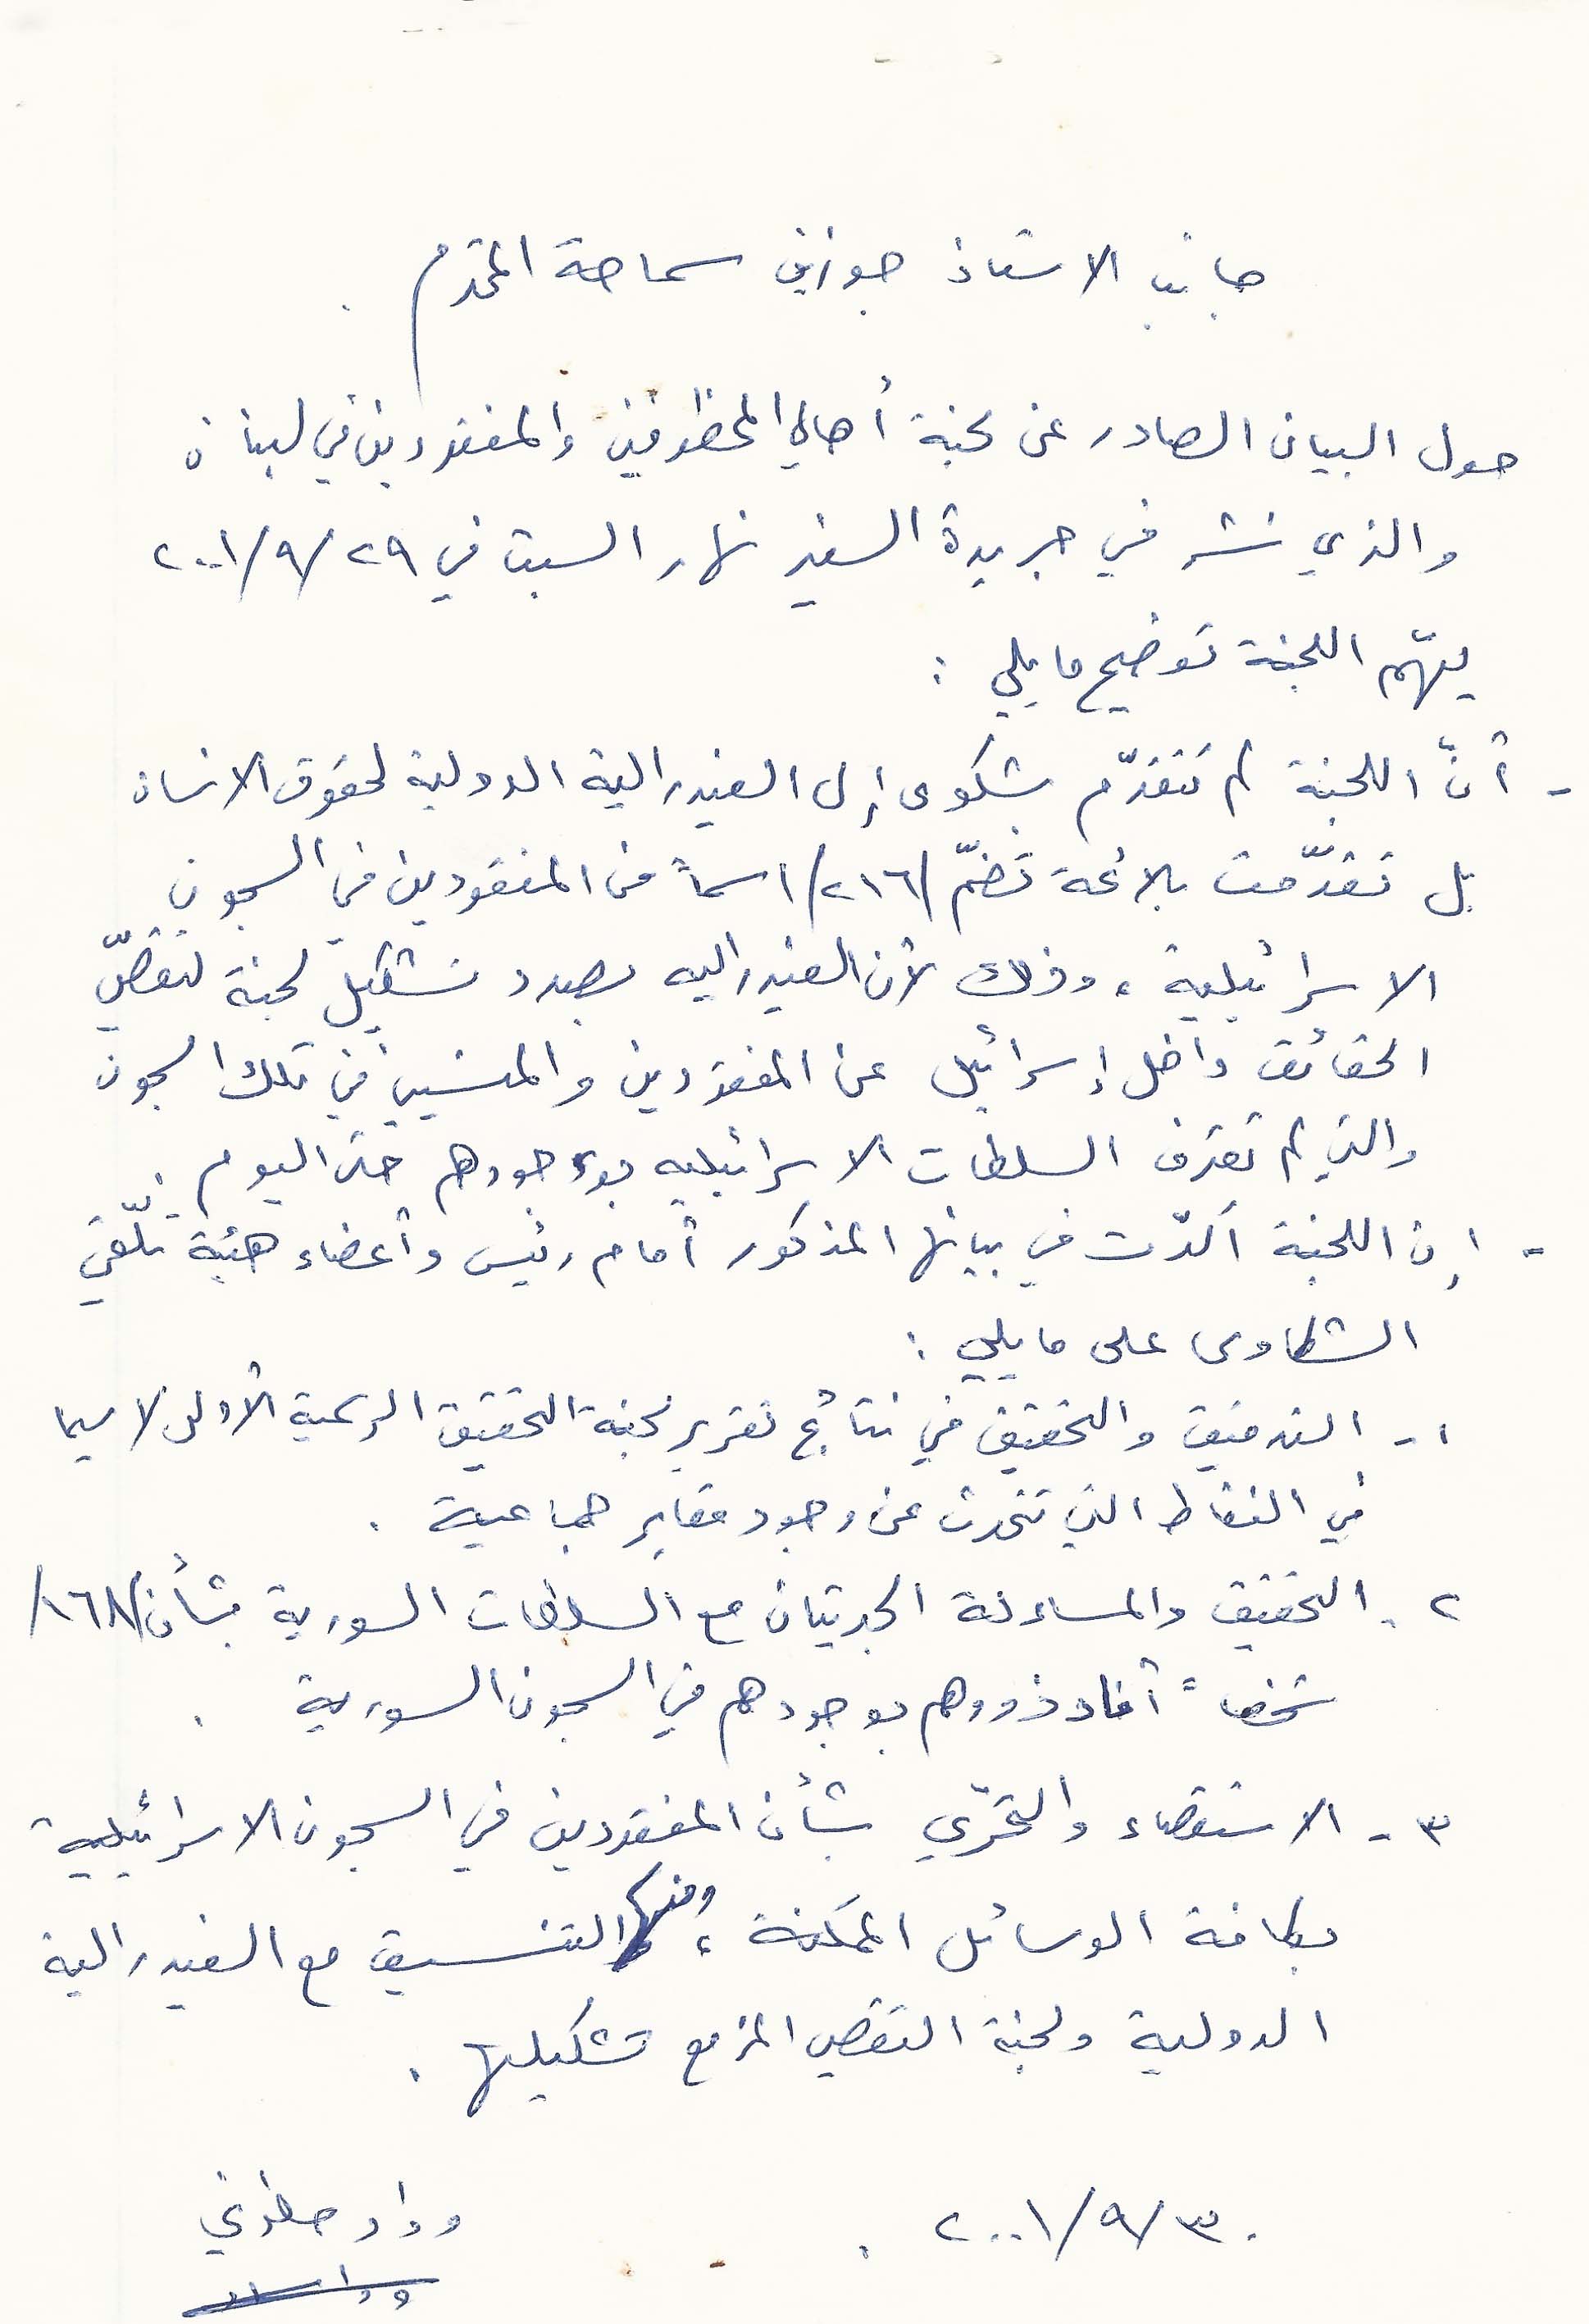 جانب الاستاذ جوزيف سماحة المحترم .
حول البيان الصادر عن لجنة أهالي المخطوفين والمفقودين في لبنان
والذي نشر في جريدة السفير نهار السبت في ٢٩/٩/٢٠٠١
يهمّ اللجنة توضيح ما يلي :
- أنّ اللجنة لم تتقدّم بشكوى إلى الفيدرالية الدولية لحقوق الانسان
بل تقدّمت بلائحة تضمّ /٢١٦/ اسماً من المفقودين في السجون
الاسرائيلية ، وذلك لأن الفيدراليه بصدد تشكيل لجنة لتقصّي
الحقائق داخل إسرائيل عن المفقودين والمنسيين في تلك السجون
والتي لم تعترف السلطات الاسرائيليه بوجودهم حتى اليوم .
- إن اللجنة أكدّت في بيانها المذكور أمام رئيس وأعضاء هيئة تلّقي
الشكاوى على ما يلي :
١- التدقيق والتحقيق في نتائج تقرير لجنة التحقيق الرسمية الأولى لا سيما
في النقاط التي تتحدث عن وجود مقابر جماعية .
٢- التحقيق والمساءلة الجديتان مع السلطات السورية بشأن /١٦٨/
شخصاً أفاد ذووهم بوجودهم في السجون السورية .
٣- الاستقصاء والتحرّي بشأن المفقودين في السجون الاسرائيلية
بكافة الوسائل الممكنة ، ومنها التنسيق مع الفيدرالية
الدولية ولجنة التقصي المزمع تشكيلها .
٣٠/٩/٢٠٠١ . وداد حلواني